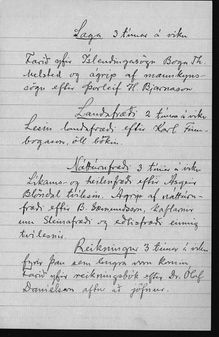 Saga 3 tímar á viku
Farið yfir Íslendingasögu Boga Th.
Melsteð og ágrip af mannkyns-
sögu eftir Þorleif H. Bjarnason
Landafræði 2 tímar á viku
Lesin landafræði eftir Karl Finn-
bogason, öll bókin.
Náttúrufræði 3 tímar á viku
Líkams- og heilsufræði eftir Ásgeir
Blöndal tvílesin. Ágrip af náttúru-
fræði eftir B. Sæmundsson, kaflarnir
um Steinafræði og eðlisfræði einnig
tvílesnir.
Reikningur 3 tímar á viku
fyrir þær sem lengra voru komnar
Farið yfir reikningsbók eftir Dr. Ólaf
Daníelsson aftur að jöfnur.